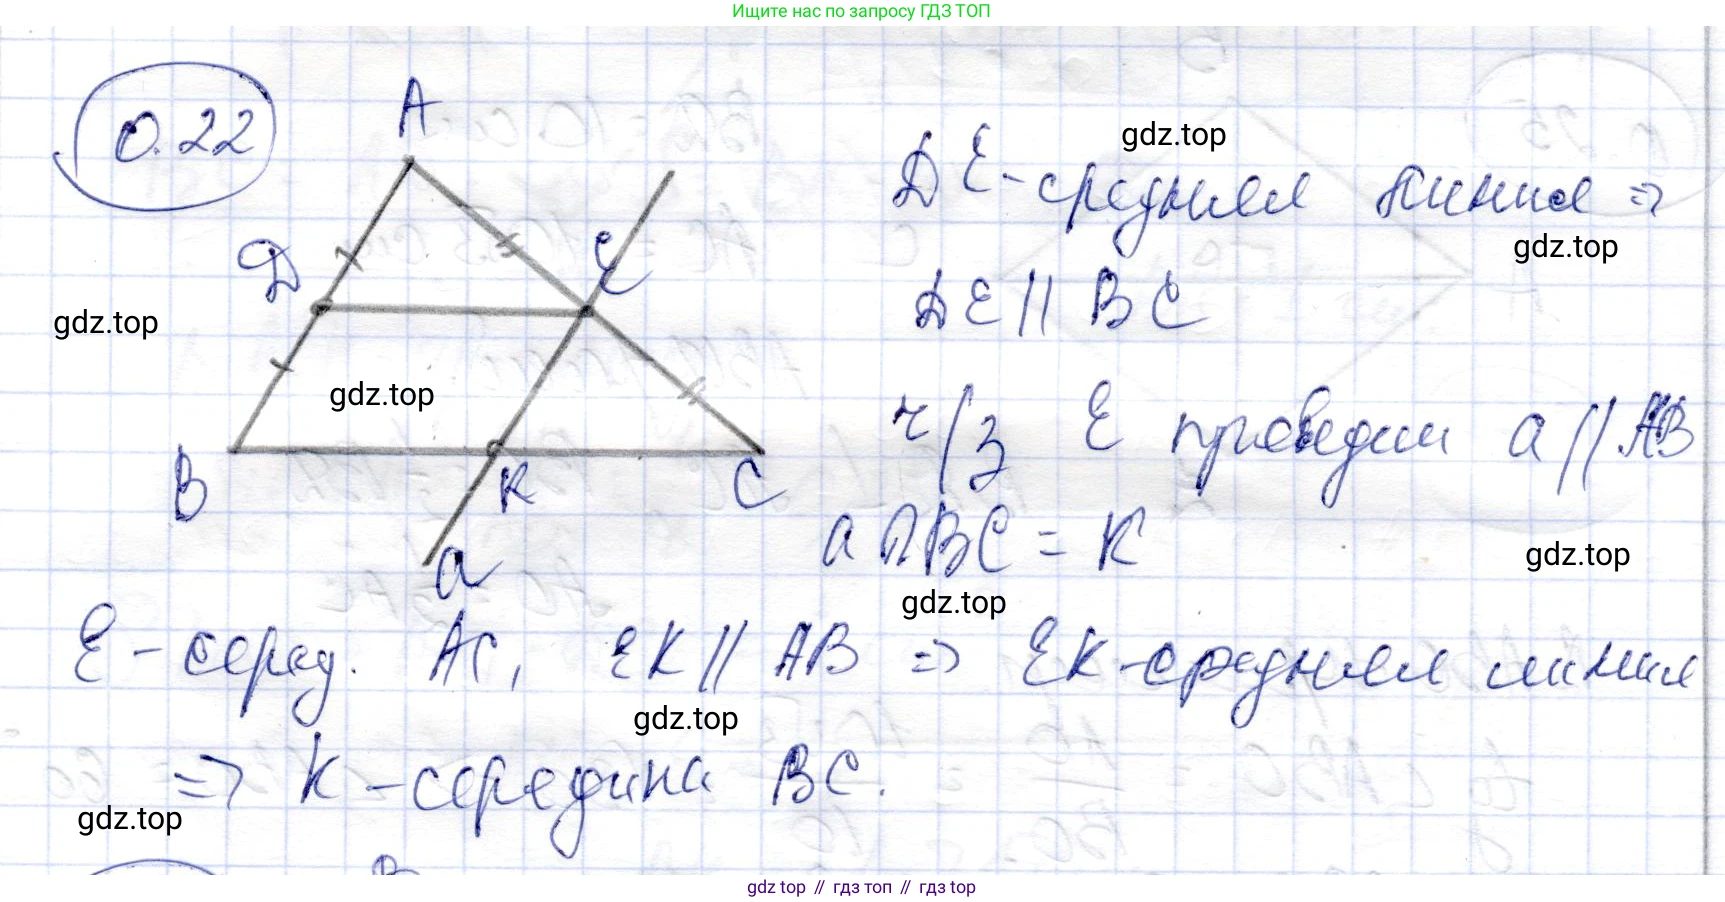 Ищите нас по запросу ГДЗ ТОП
0.22
A
gdz.top
DE - средняя линия =>
D
E
gdz.top
gdz.top
DE || BC
gdz.top
ч/з E проведем a || AB
B
K
C
a ∩ BC = K
gdz.top
a
gdz.top
E - серед. AC, EK || AB => EK - средняя линия
gdz.top
=> K - середина BC.
gdz.top
B
gdz top // гдз топ // гдз top